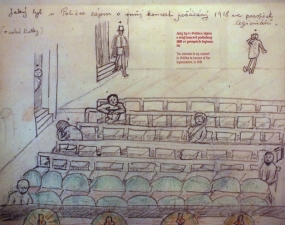 Jaký byl v Poličce zájem o můj koncert pořádaný 1918 ve prospěch
legionářů.
Jaký byl v Poličce zájem
o můj koncert pořádaný
1918 ve prospěch legioná-
řů
The interest in my concert
in Polička in favour of the
legionnaires in 1918